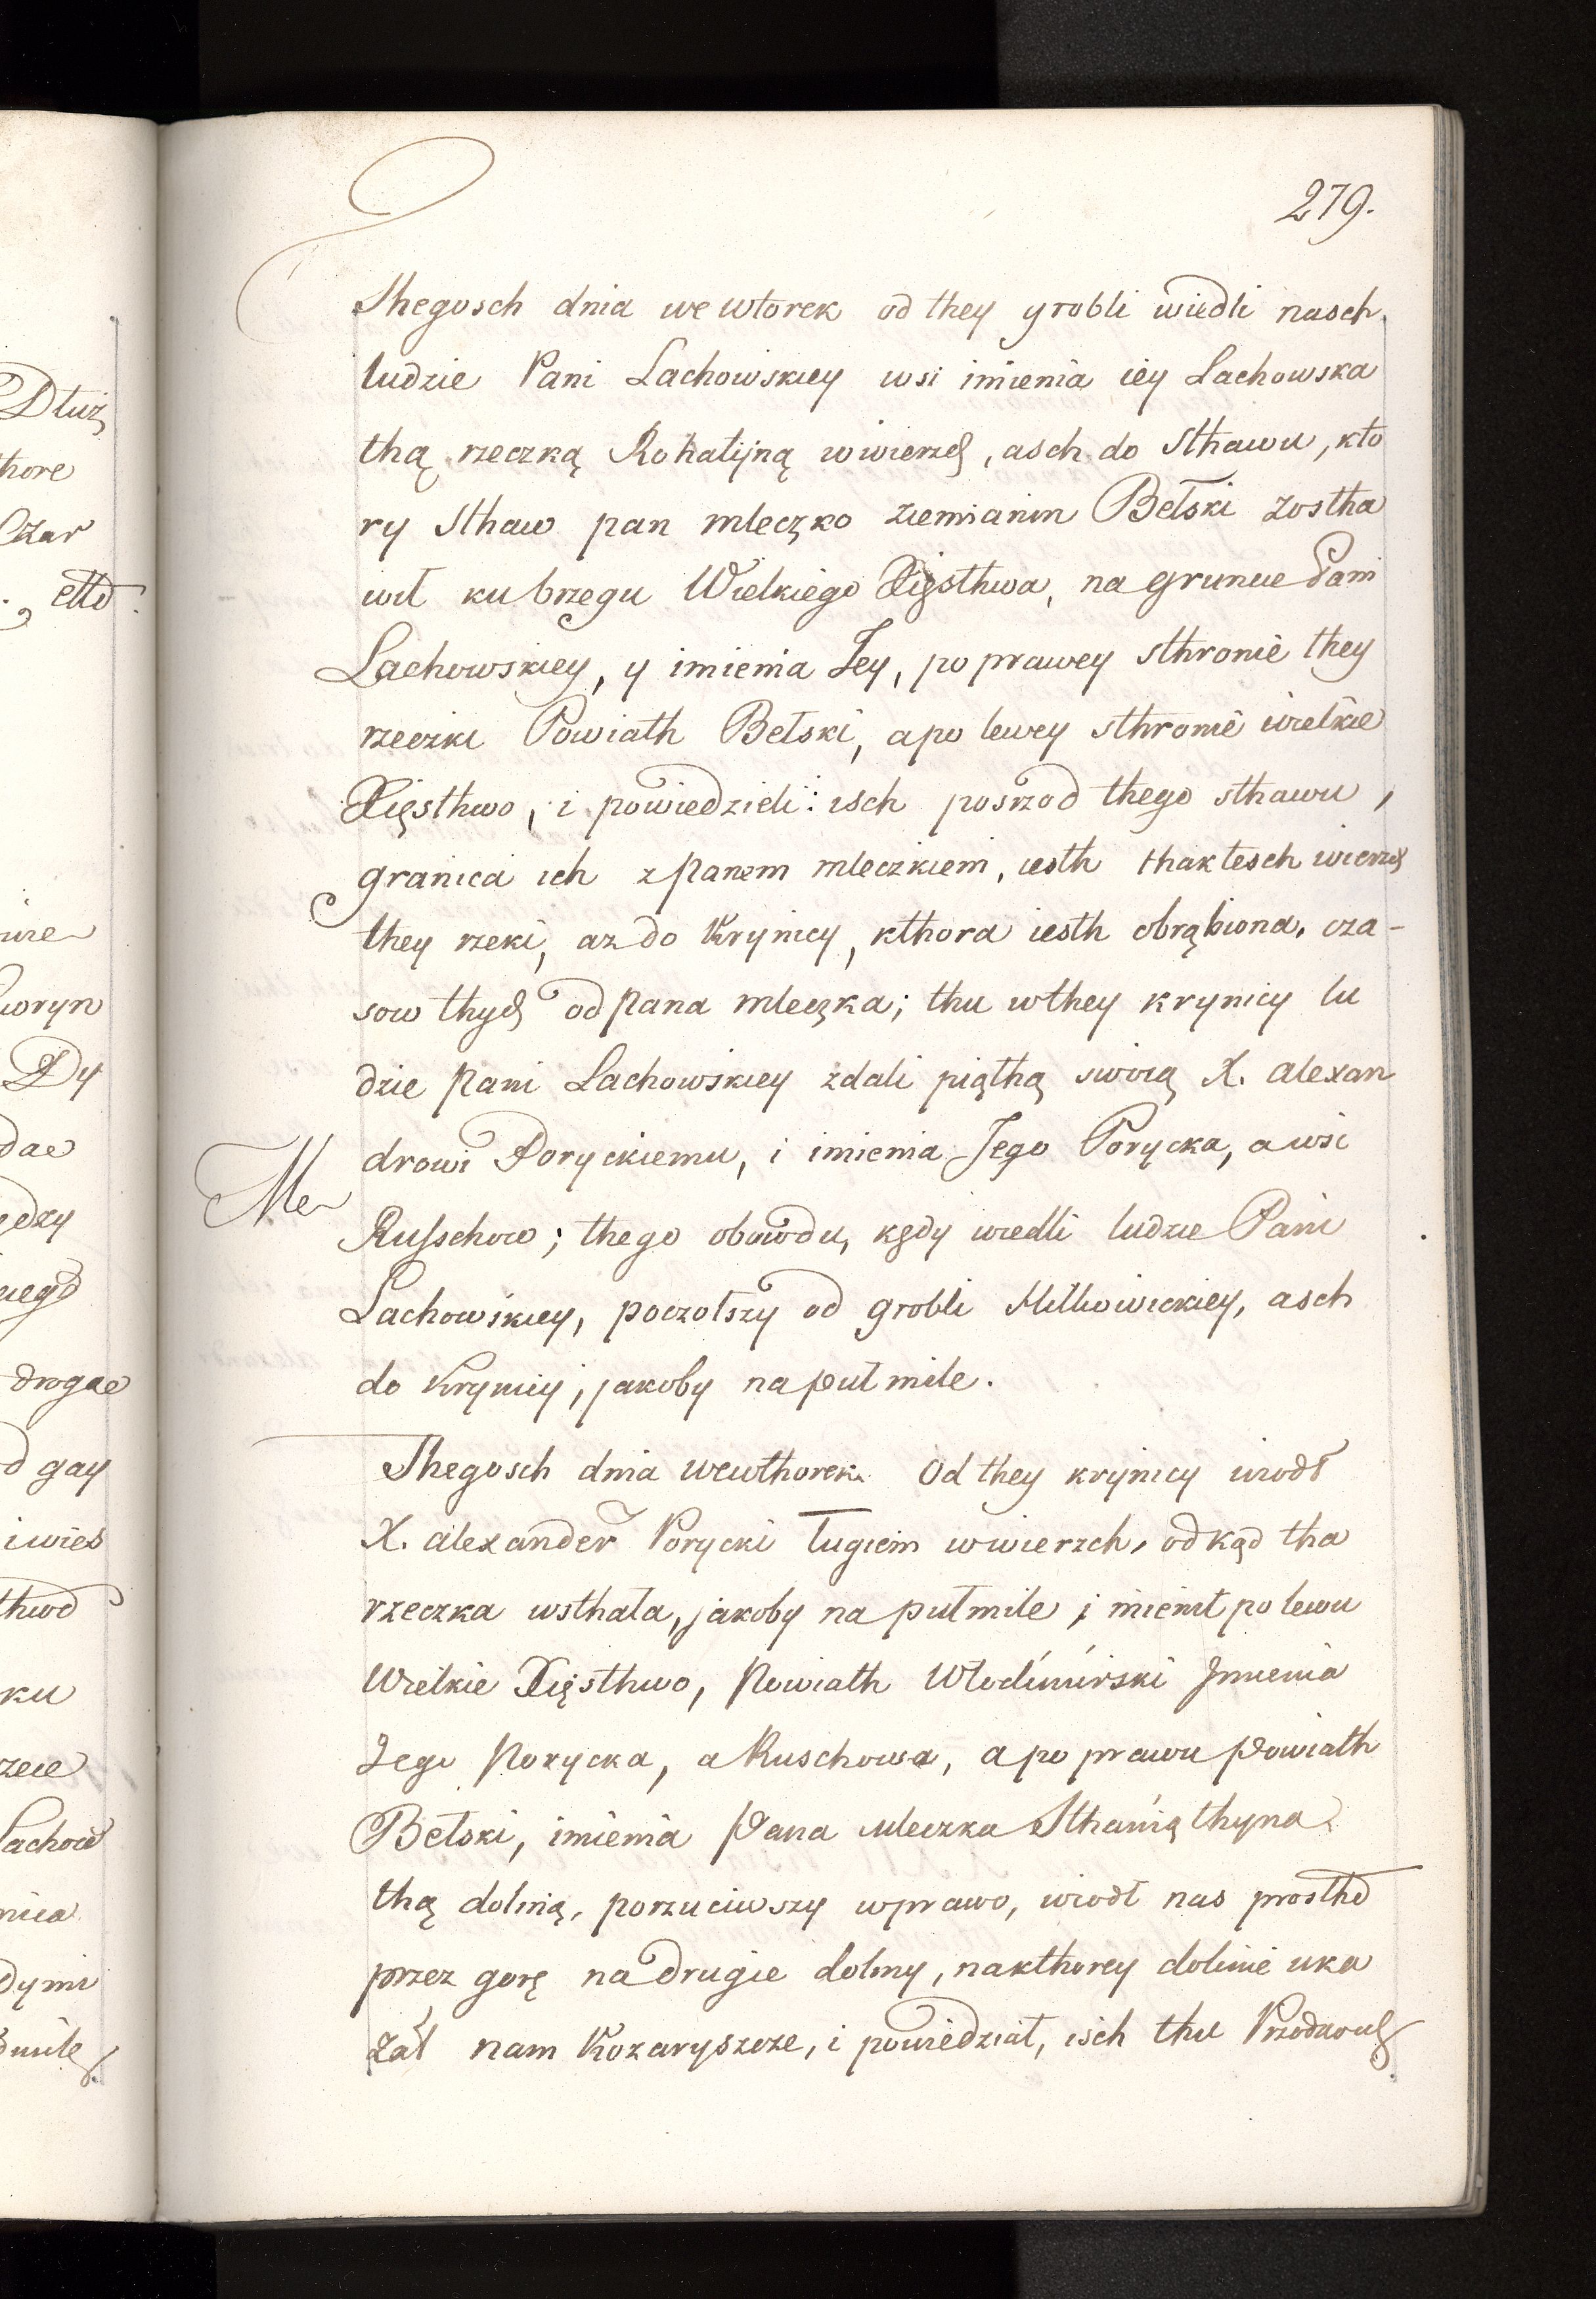 279.
Thegosch dnia we wtorek od they grobli wiedli nasch
ludzie Pani Lachowskiey wsi imienia iey Lachowska
thą rzeczką Rohatijną wwierzch, asch do Sthawu, kto
ry Sthaw pan mleczko ziemianin Bełski zostha
wił ku brzegu Wielkiego Xięsthwa, na gruncie Pani
Lachowskiey, y imienia Jey, po prawey sthronie they
rzeczki Powiath Bełski, a po lewey sthronie wielkie
Xięsthwo, i powiedzieli: isch posrzod thego sthawu,
granica ich z Panem mleczkiem, iesth thaktesch wierzch
they rzeki, az do Krynicy, kthora iesth obrąbiona, cza-
sow thych od Pana mleczka; thu wthey krynicy lu
dzie Pani Lachowskiey zdali piąthą swoią X. alexan
drowi Poryckiemu, i imienia Jego Porycka, a wsi
Me
Russchow; thego obwodu, kędy wiedli ludzie Pani
Lachowskiey, poczołszy od grobli Mitkowickiey, asch
do Krynicy, jakoby na puł mile.
Thegosch dnia wewthorek. Od they krynicy wiodł
X. alexander Porycki Ługiem wwierzch, odkąd tha
rzeczka wsthała, jakoby na pułmile, i mienił po lewu
Wielkie Xięsthwo, Powiath Włodimirski Jmienia
Jego Porycka, a Ruschowa, a po prawu Powiath
Bełski, imienia Pana mleczka Sthaniąthyna
thą doliną, porzuciwszy wprawo, wiodł nas prostho
przez gorę na drugie doliny, nakthorey dolinie uka
zał nam Kozaryszcze, i powiedział, isch thu Przodkowie
Dłuż
thore
Czar
woryn
Dy
dae
drogae
d gay
i wies
thwo
ku
zeie
Lachow
nica
dymi